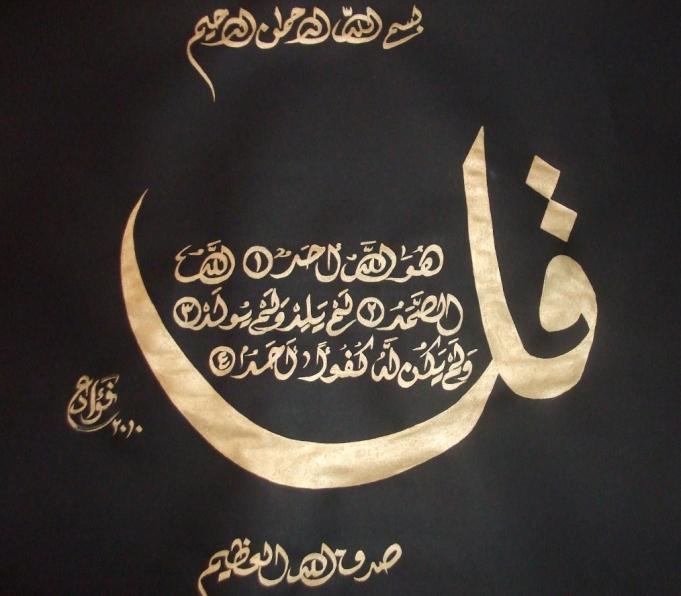 بسم الله الرحمن الرحيم
قل
هُوَ اللَّهُ أَحَدٌ ١ اللَّهُ
الصَّمَدُ ٢ لَمْ يَلِدْ وَلَمْ يُولَدْ ٣
وَلَمْ يَكُن لَّهُ كُفُوًا أَحَدٌ ٤
فؤاد
٢٠١٠
صدق الله العظيم